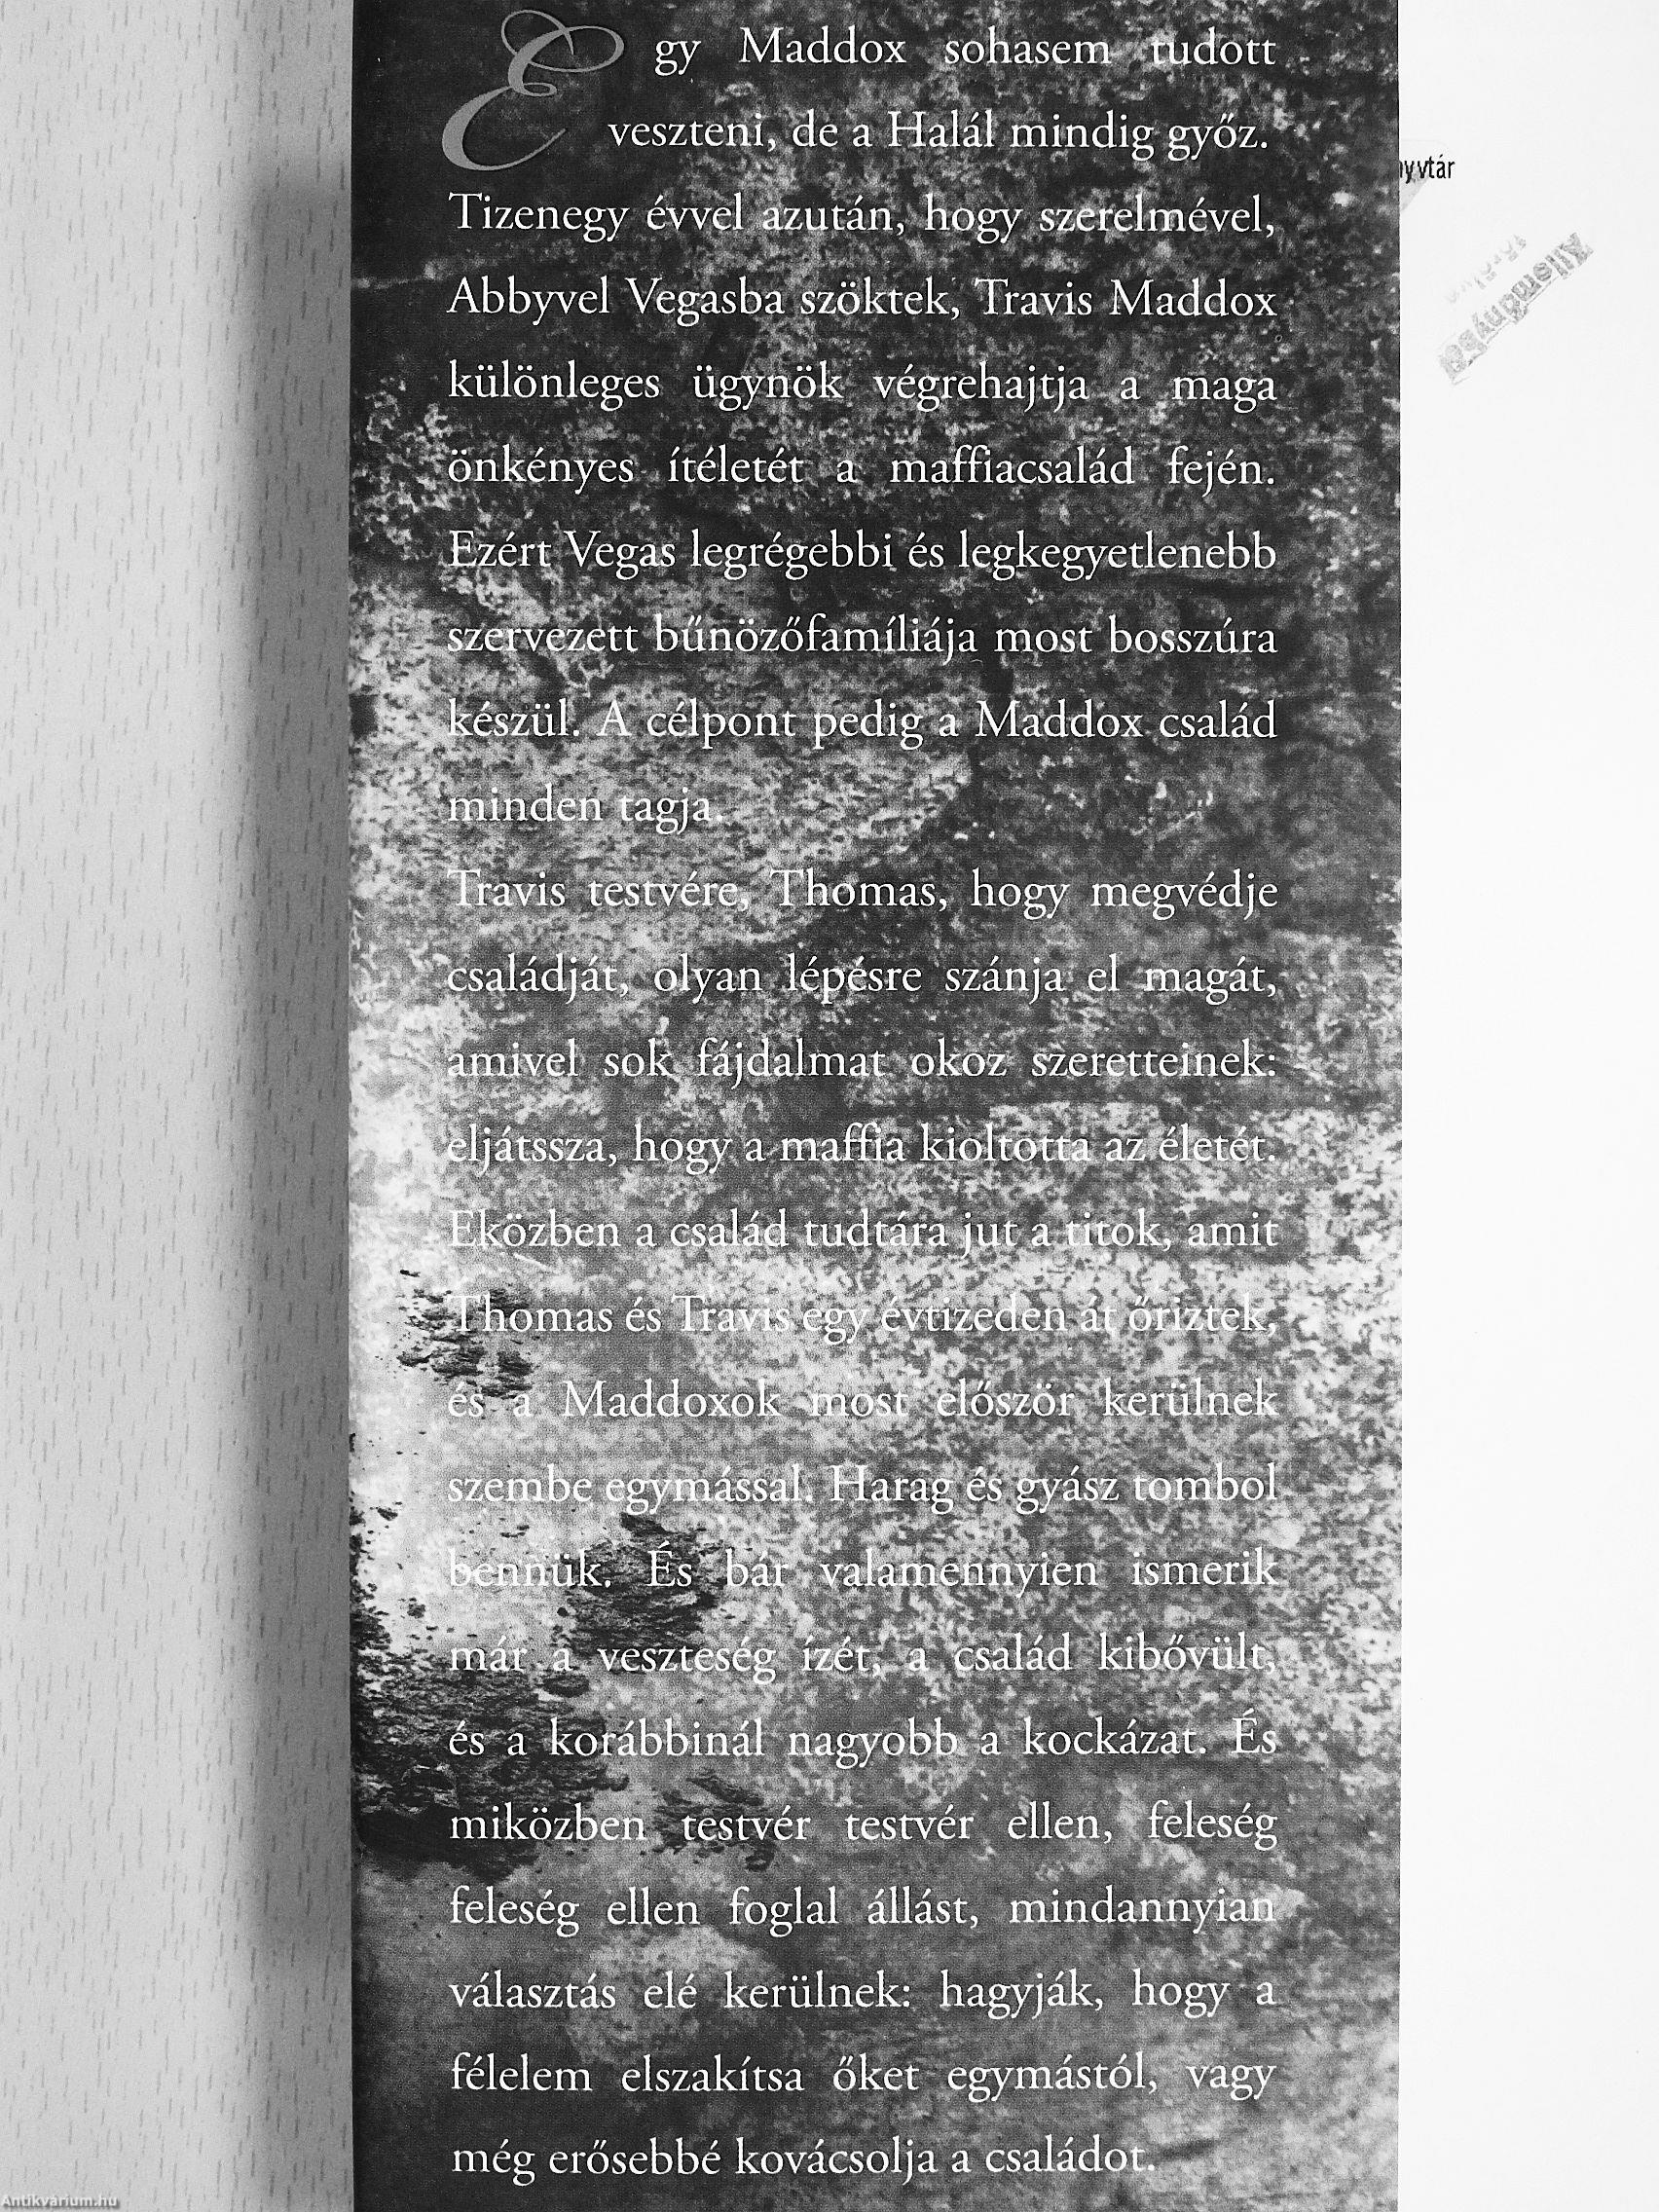 Egy Maddox sohasem tudott
veszteni, de a Halál mindig győz.
Tizenegy évvel azután, hogy szerelmével,
Abbyvel Vegasba szöktek, Travis Maddox
különleges ügynök végrehajtja a maga
önkényes ítéletét a maffiacsalád fején.
Ezért Vegas legrégebbi és legkegyetlenebb
szervezett bűnözőfamíliája most bosszúra
készül. A célpont pedig a Maddox család
minden tagja.
Travis testvére, Thomas, hogy megvédje
családját, olyan lépésre szánja el magát,
amivel sok fájdalmat okoz szeretteinek:
eljátssza, hogy a maffia kioltotta az életét.
Eközben a család tudtára jut a titok, amit
Thomas és Travis egy évtizeden át őriztek,
és a Maddoxok most először kerülnek
szembe egymással. Harag és gyász tombol
bennük. És bár valamennyien ismerik
már a veszteség ízét, a család kibővült,
és a korábbinál nagyobb a kockázat. És
miközben testvér testvér ellen, feleség
feleség ellen foglal állást, mindannyian
választás elé kerülnek: hagyják, hogy a
félelem elszakítsa őket egymástól, vagy
még erősebbé kovácsolja a családot.
yvtár
Antikvarium.hu